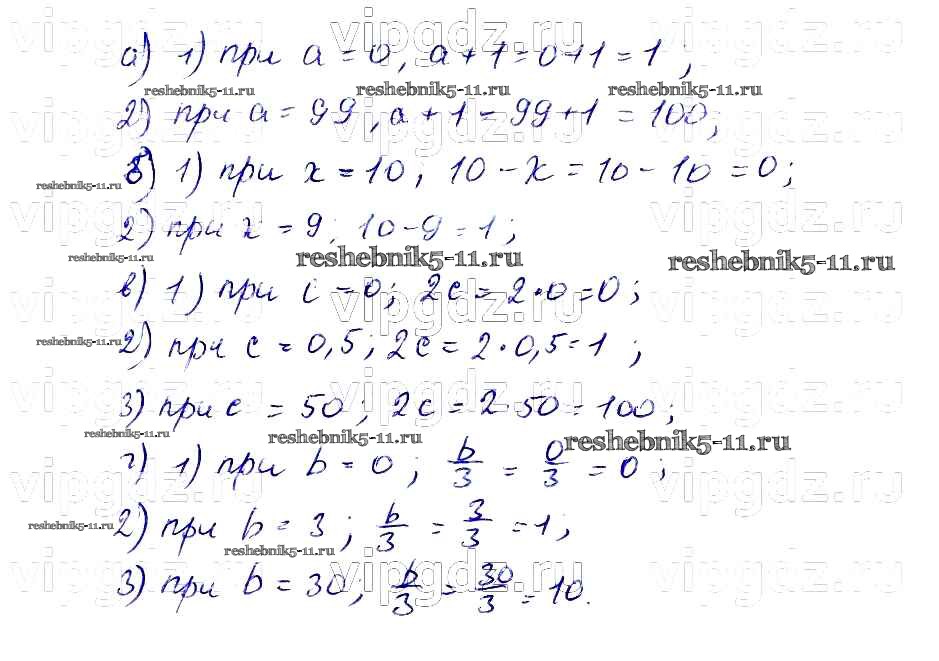 vipgdz.ru vipgdz.ru vipgdz.ru
а) 1) при a = 0, a + 1 = 0 + 1 = 1 ;
reshebnik5-11.ru reshebnik5-11.ru reshebnik5-11.ru
2) при a = 99, a + 1 = 99 + 1 = 100;
vipgdz.ru vipgdz.ru vipgdz.ru
б) 1) при x = 10; 10 - x = 10 - 10 = 0;
reshebnik5-11.ru
vipgdz.ru vipgdz.ru vipgdz.ru
2) при x = 9; 10 - 9 = 1;
reshebnik5-11.ru reshebnik5-11.ru reshebnik5-11.ru
в) 1) при c = 0; 2c = 2 · 0 = 0;
vipgdz.ru vipgdz.ru vipgdz.ru
reshebnik5-11.ru
2) при c = 0,5; 2c = 2 · 0,5 = 1 ;
vipgdz.ru vipgdz.ru vipgdz.ru
3) при c = 50; 2c = 2 · 50 = 100;
reshebnik5-11.ru reshebnik5-11.ru reshebnik5-11.ru
г) 1) при b = 0; b/3 = 0/3 = 0 ;
vipgdz.ru vipgdz.ru vipgdz.ru
reshebnik5-11.ru
2) при b = 3; b/3 = 3/3 = 1;
reshebnik5-11.ru
vipgdz.ru vipgdz.ru vipgdz.ru
3) при b = 30; b/3 = 30/3 = 10.